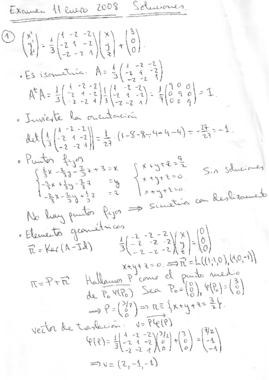 Examen 11 enero 2008 Soluciones.
① (x' y' z') = 1/3 (1 -2 -2 / -2 1 -2 / -2 -2 1) (x y z) + (3 0 0).
• Es isometría: A = 1/3 (1 -2 -2 / -2 1 -2 / -2 -2 1)
AᵗA = 1/3 (1 -2 -2 / -2 1 -2 / -2 -2 1) 1/3 (1 -2 -2 / -2 1 -2 / -2 -2 1) = 1/9 (9 0 0 / 0 9 0 / 0 0 9) = I.
• Invierte la orientación
det[1/3 (1 -2 -2 / -2 1 -2 / -2 -2 1)] = 1/27 (1-8-8-4-4-4) = -27/27 = -1.
• Puntos fijos
{ 1/3x - 2/3y - 2/3z + 3 = x { x+y+z = 9/2
-2/3x + 1/3y - 2/3z = y x+y+z = 0 Sin soluciones
-2/3x - 2/3y + 1/3z = z x+y+z = 0.
No hay puntos fijos ⇒ Simetría con deslizamiento
• Elementos geométricos
π⃗ = Ker(A-Id) 1/3 (-2 -2 -2 / -2 -2 -2 / -2 -2 -2) (x y z) = (0 0 0)
x+y+z=0 ⇒ π⃗ = L{(1,-1,0),(1,0,-1)}
π = P + π⃗ Hallamos P como el punto medio
de P₀ Ψ(P₀) Sea P₀ = (0 0 0), Ψ(P₀) = (3 0 0)
⇒ P = (3/2 0 0) ⇒ π ≡ {x+y+z = 3/2}.
vector de traslación: v = PΨ(P)
Ψ(P) = 1/3 (1 -2 -2 / -2 1 -2 / -2 -2 1) (3/2 0 0) + (3 0 0) = (7/2 -1 -1)
⇒ v = (2, -1, -1)